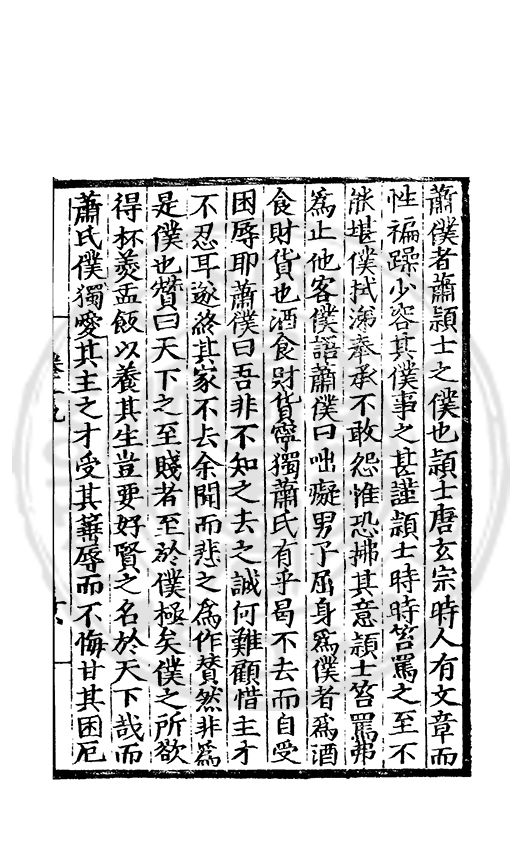 蕭僕者蕭穎士之僕也穎士唐玄宗時人有文章而
性褊躁少容其僕事之甚謹穎士時時笞罵之至不
能堪僕拭涕奉承不敢怨惟恐拂其意穎士笞罵弗
為止他客僕語蕭僕曰咄癡男子屈身為僕者為酒
食財貨也酒食財貨寧獨蕭氏有乎曷不去而自受
困辱耶蕭僕曰吾非不知之去之誠何難顧惜主才
不忍耳遂終其家不去余聞而悲之為作贊然非為
是僕也贊曰天下之至賤者至於僕極矣僕之所欲
得杯羹盂飯以養其生豈要好賢之名於天下哉而
蕭氏僕獨愛其主之才受其箠辱而不悔甘其困厄